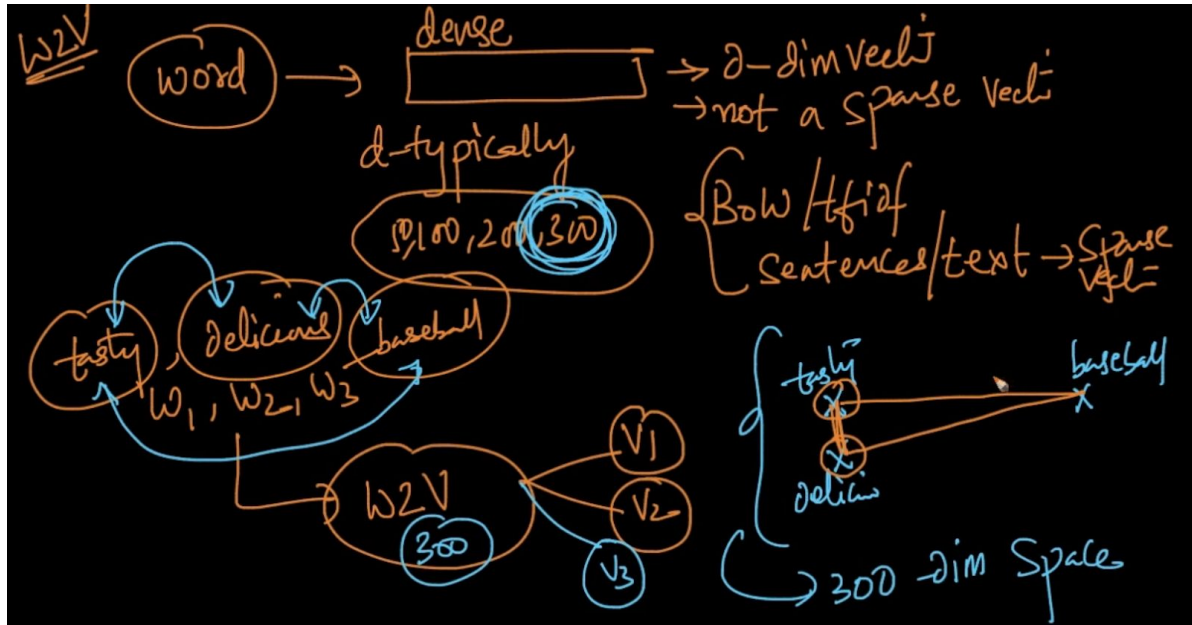 W2V
word
dense
→ d-dim vect
→ not a sparse vect
d-typically
50,100,200,300
{BoW/tfidf
sentences/text → sparse
vect
tasty, delicious baseball
w1, w2, w3
W2V
300
V1
V2
V3
tasty
baseball
delicio
300-dim space